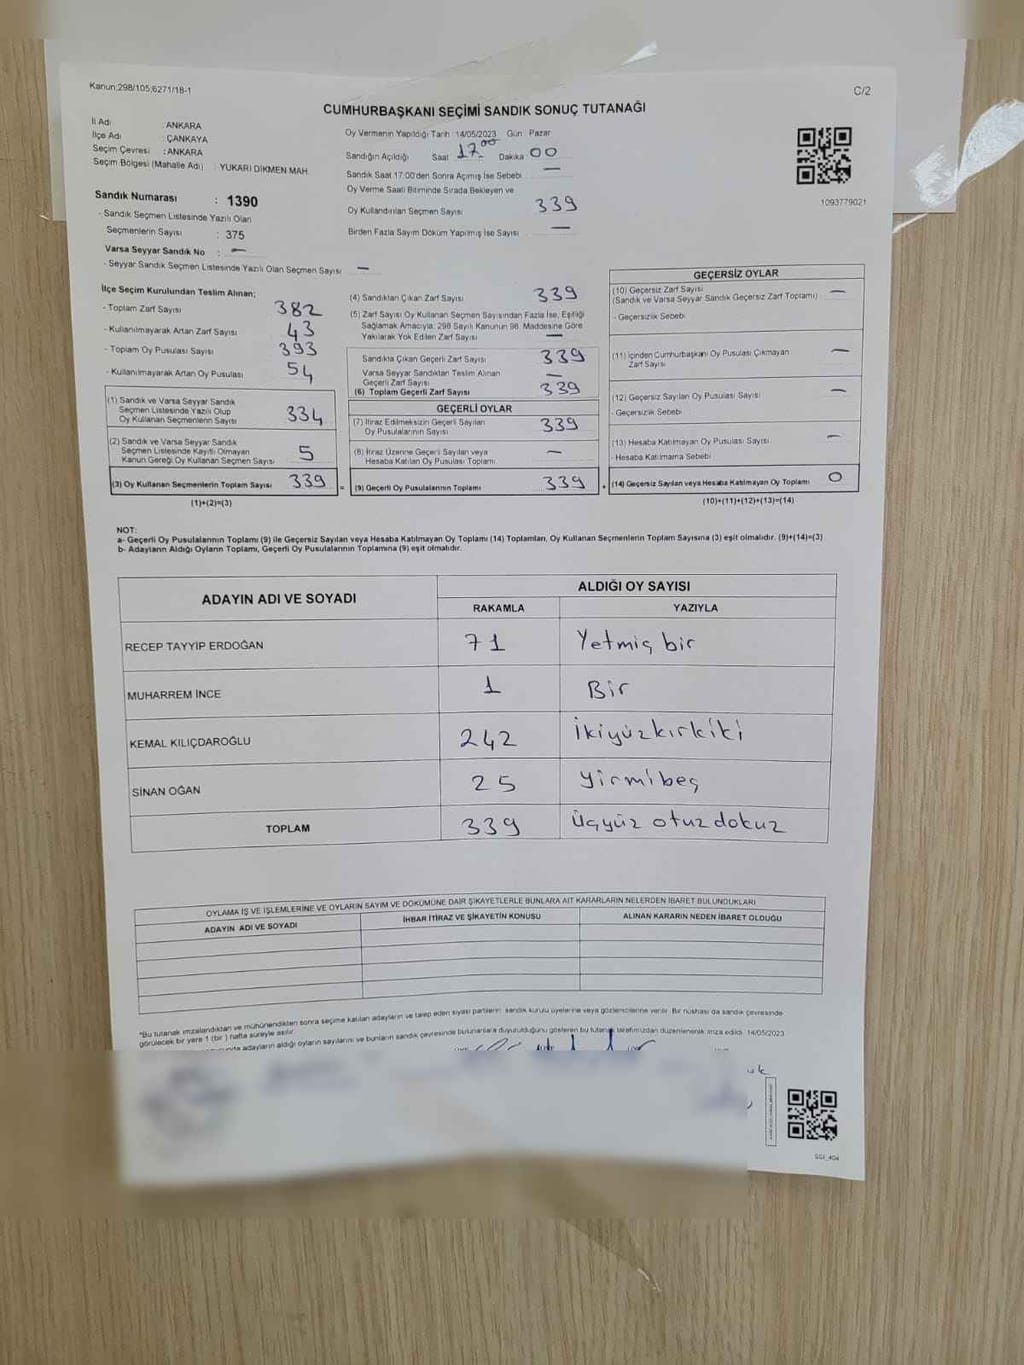 Kanun;298/105;6271/18-1
C/2
CUMHURBAŞKANI SEÇİMİ SANDIK SONUÇ TUTANAĞI
İl Adı : ANKARA
İlçe Adı : ÇANKAYA
Seçim Çevresi : ANKARA
Seçim Bölgesi (Mahalle Adı) : YUKARI DİKMEN MAH
Sandık Numarası : 1390
- Sandık Seçmen Listesinde Yazılı Olan
Seçmenlerin Sayısı : 375
Varsa Seyyar Sandık No : —
- Seyyar Sandık Seçmen Listesinde Yazılı Olan Seçmen Sayısı —
Oy Vermenin Yapıldığı Tarih 14/05/2023 Gün : Pazar
Sandığın Açıldığı Saat 17.00 Dakika 00
Sandık Saat 17:00'den Sonra Açımış İse Sebebi —
Oy Verme Saati Bitiminde Sırada Bekleyen ve
Oy Kullandırılan Seçmen Sayısı 339
Birden Fazla Sayım Döküm Yapılmış İse Sayısı —
1093779021
İlçe Seçim Kurulundan Teslim Alınan;
- Toplam Zarf Sayısı 382
- Kullanılmayarak Artan Zarf Sayısı 43
- Toplam Oy Pusulası Sayısı 393
- Kullanılmayarak Artan Oy Pusulası 54
(1) Sandık ve Varsa Seyyar Sandık
Seçmen Listesinde Yazılı Olup
Oy Kullanan Seçmenlerin Sayısı 334
(2) Sandık ve Varsa Seyyar Sandık
Seçmen Listesinde Kayıtlı Olmayan
Kanun Gereği Oy Kullanan Seçmen Sayısı 5
(3) Oy Kullanan Seçmenlerin Toplam Sayısı 339
(1)+(2)=(3)
(4) Sandıktan Çıkan Zarf Sayısı 339
(5) Zarf Sayısı Oy Kullanan Seçmen Sayısından Fazla İse, Eşitliği
Sağlamak Amacıyla; 298 Sayılı Kanunun 98. Maddesine Göre
Yakılarak Yok Edilen Zarf Sayısı —
Sandıkta Çıkan Geçerli Zarf Sayısı 339
Varsa Seyyar Sandıktan Teslim Alınan
Geçerli Zarf Sayısı —
(6) Toplam Geçerli Zarf Sayısı 339
GEÇERLİ OYLAR
(7) İtiraz Edilmeksizin Geçerli Sayılan
Oy Pusulalarının Sayısı 339
(8) İtiraz Üzerine Geçerli Sayılan veya
Hesaba Katılan Oy Pusulası Toplamı —
= (9) Geçerli Oy Pusulalarının Toplamı 339
GEÇERSİZ OYLAR
(10) Geçersiz Zarf Sayısı —
(Sandık ve Varsa Seyyar Sandık Geçersiz Zarf Toplamı)
- Geçersizlik Sebebi
(11) İçinden Cumhurbaşkanı Oy Pusulası Çıkmayan —
Zarf Sayısı
(12) Geçersiz Sayılan Oy Pusulası Sayısı —
- Geçersizlik Sebebi
(13) Hesaba Katılmayan Oy Pusulası Sayısı —
- Hesaba Katılmama Sebebi
+ (14) Geçersiz Sayılan veya Hesaba Katılmayan Oy Toplamı 0
(10)+(11)+(12)+(13)=(14)
NOT:
a- Geçerli Oy Pusulalarının Toplamı (9) ile Geçersiz Sayılan veya Hesaba Katılmayan Oy Toplamı (14) Toplamları, Oy Kullanan Seçmenlerin Toplam Sayısına (3) eşit olmalıdır. (9)+(14)=(3)
b- Adayların Aldığı Oyların Toplamı, Geçerli Oy Pusulalarının Toplamına (9) eşit olmalıdır.
ADAYIN ADI VE SOYADI ALDIĞI OY SAYISI
RAKAMLA YAZIYLA
RECEP TAYYİP ERDOĞAN 71 Yetmiş bir
MUHARREM İNCE 1 Bir
KEMAL KILIÇDAROĞLU 242 İkiyüzkırkiki
SİNAN OĞAN 25 yirmibeş
TOPLAM 339 Üçyüz otuzdokuz
OYLAMA İŞ VE İŞLEMLERİNE VE OYLARIN SAYIM VE DÖKÜMÜNE DAİR ŞİKAYETLERLE BUNLARA AİT KARARLARIN NELERDEN İBARET BULUNDUKLARI
ADAYIN ADI VE SOYADI İHBAR İTİRAZ VE ŞİKAYETİN KONUSU ALINAN KARARIN NEDEN İBARET OLDUĞU
*Bu tutanak imzalandıktan ve mühürlendikten sonra seçime katılan adayların ve talep eden siyasi partilerin sandık kurulu üyelerine veya gözlemcilerine verilir. Bir nüshası da sandık çevresinde
görülecek bir yere 1 (bir) hafta süreyle asılır.
adayların aldığı oyların sayılarını ve bunların sandık çevresinde bulunanlara duyurulduğunu gösteren bu tutanak tarafımızdan düzenlenerek imza edildi. 14/05/2023